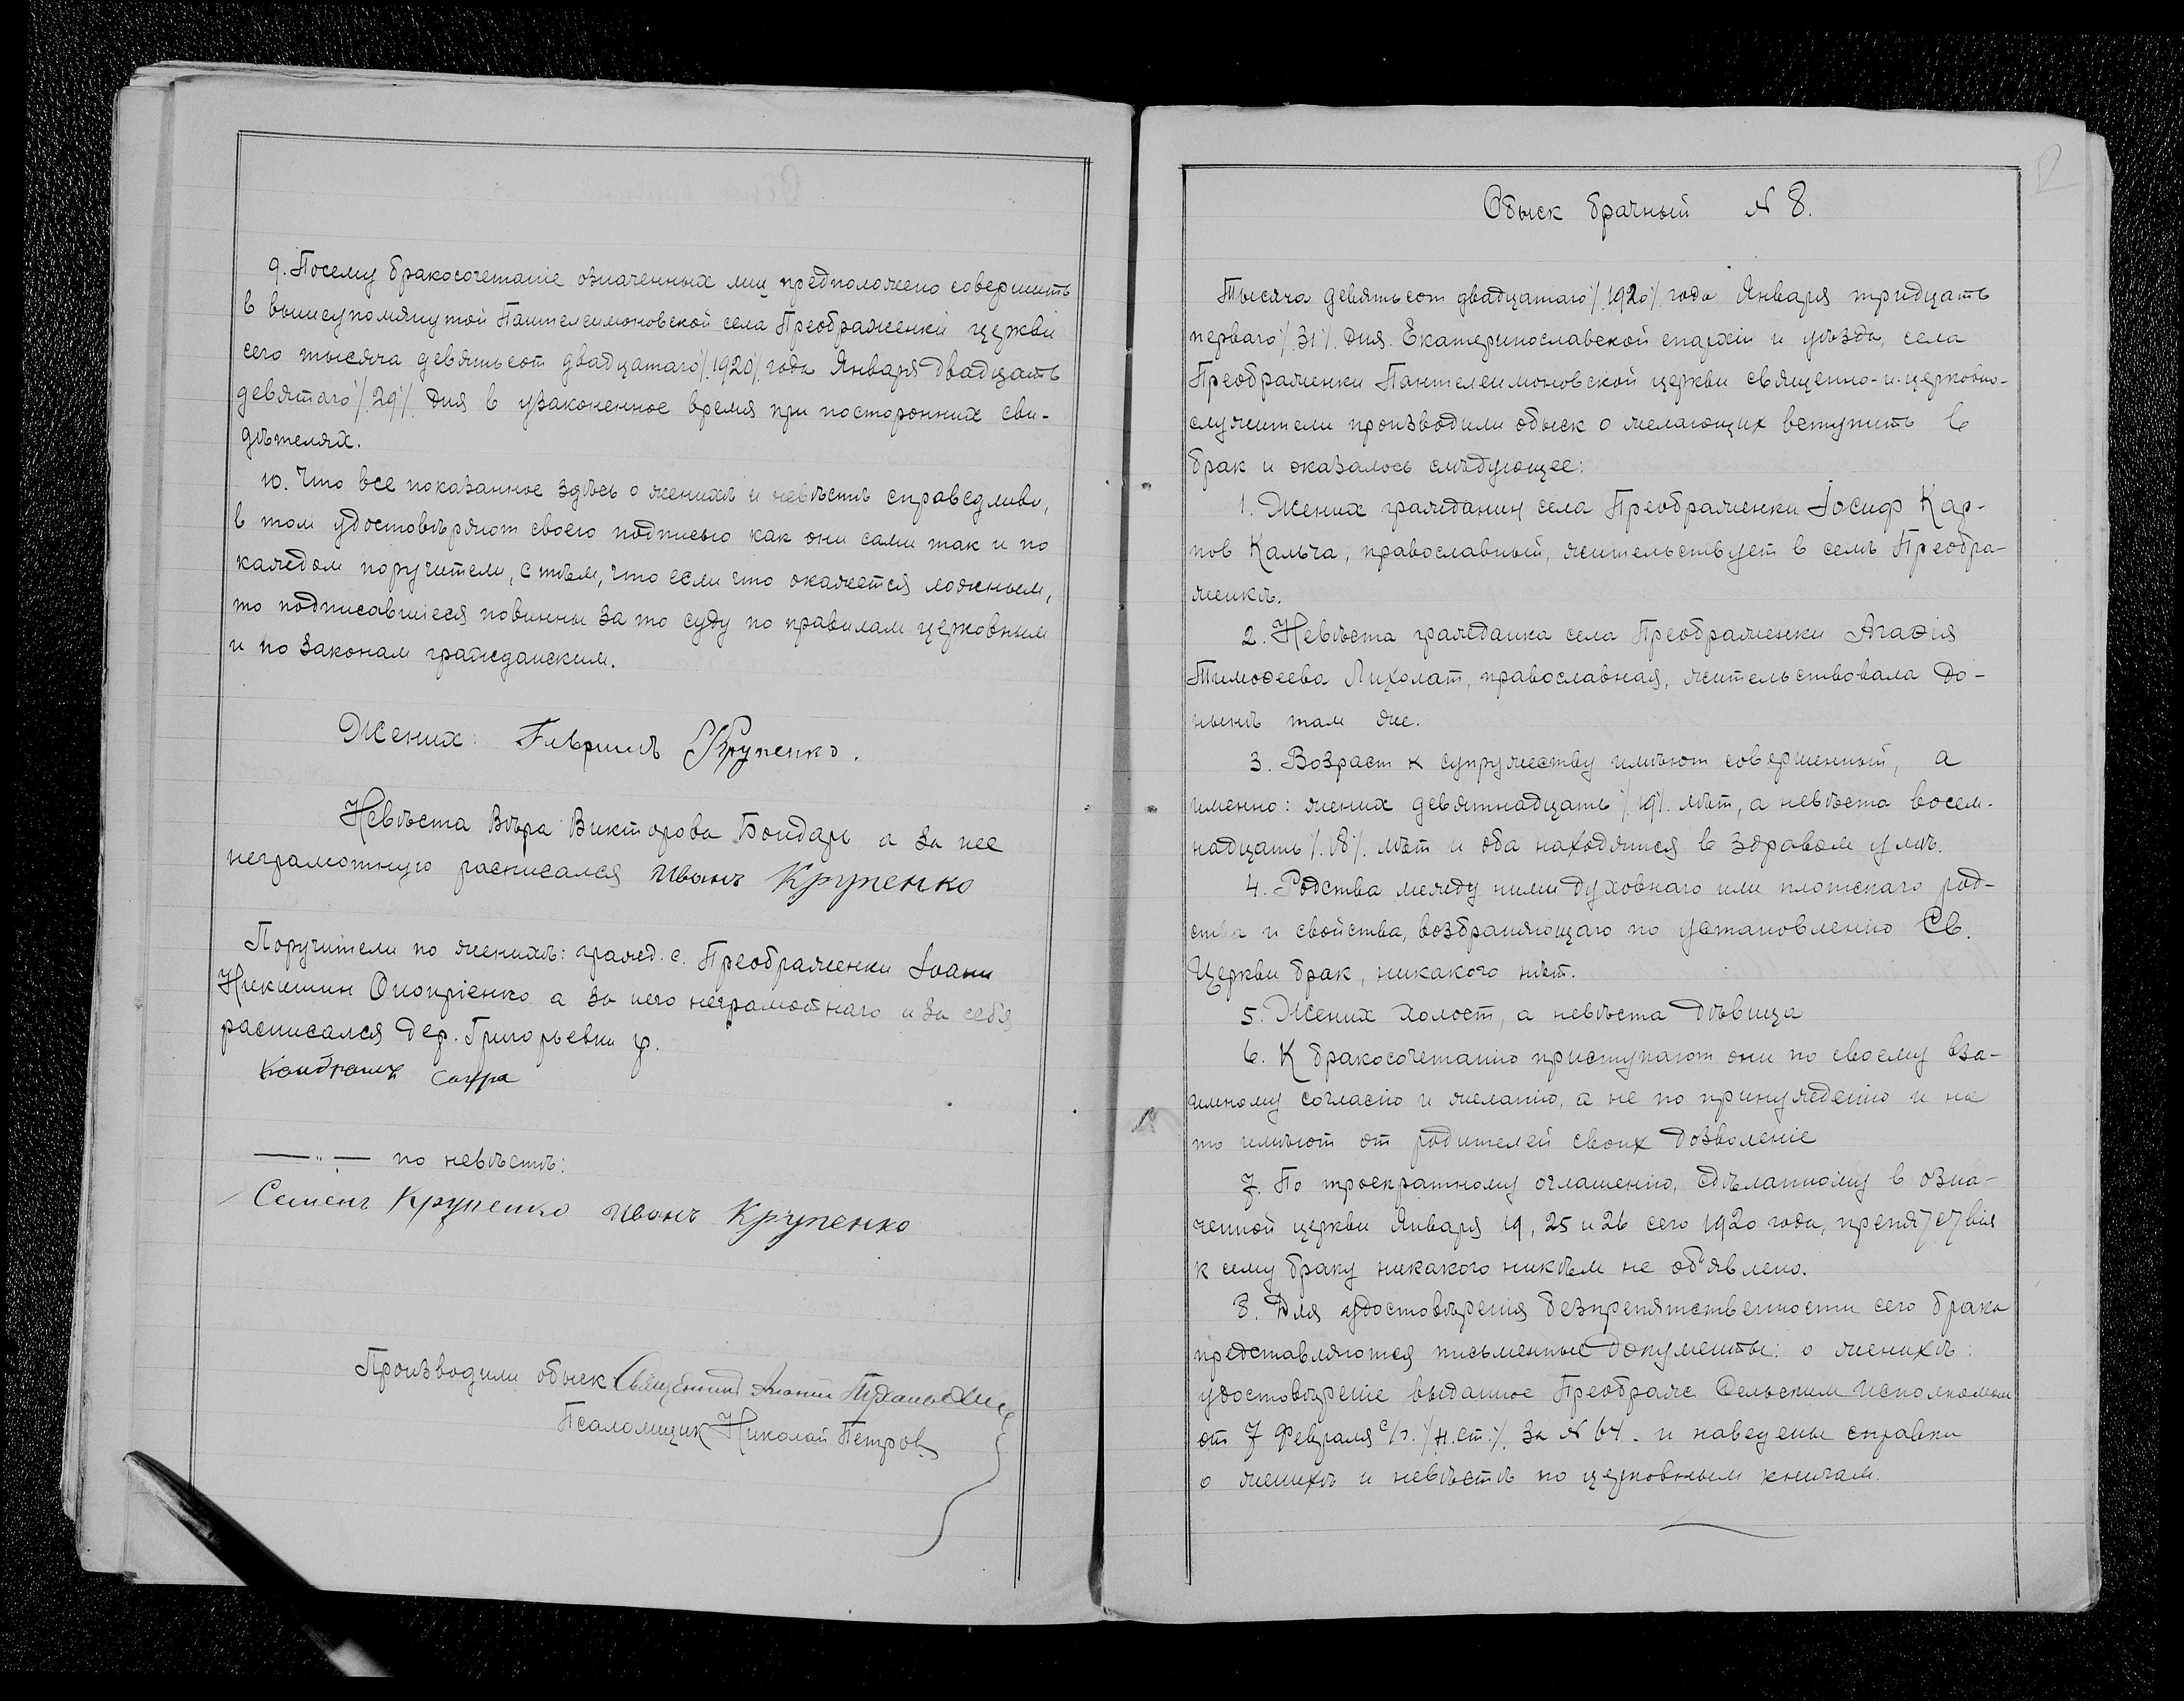 9. Посему бракосочетаніе означенных лиц предположено совершить
в вышеупомянутой Пантелеимоновской села Преображенки церкви
сего тысяча девятьсот двадцатаго /.1920/. года Января двадцать
девятаго /.29/. дня в узаконенное время при посторонних сви-
дѣтелях.
10. Что все показанное здѣсь о женихѣ и невѣстѣ справедливо,
в том удостовѣряют своего подписью как они сами так и по
каждом поручители, с тѣм, что если что окажется ложным,
то подписавшіеся повинны за то суду по правилам церковным
и по законам гражданским.
Жених: Гавриилъ Крупенко.
Невѣста Вѣра Викторова Бондарь а за нее
неграмотную расписался Иванъ Крупенко
Поручители по женихѣ: гражд. с. Преображенки Іоанн
Никитин Оноприенко а за него неграмотнаго и за себя
расписался дер. Григорьевки
по невѣстѣ:
Семенъ Крупенко Иванъ Крупенко
Производили обыск: Священник
Псаломщик Николай Петров
Обыск брачный N 8.
Тысяча девятьсот двадцатаго /.1920/. года Января тридцать
перваго /.31/. дня. Екатеринославской епархіи и уѣзда, села
Преображенки Пантелеимоновской церкви священно-и-церковно-
служители производили обыск о желающих вступить в
брак и оказалось слѣдующее:
1. Жених гражданин села Преображенки Іосиф Кар-
пов Кальча, православный, жительствует в селѣ Преобра-
женкѣ.
2. Невѣста гражданка села Преображенки Агаѳія
Тимоѳеева Лихолат, православная, жительствовала до-
нынѣ там же.
3. Возраст к супружеству имѣют совершенный, а
именно: жених девятнадцать /.19/. лѣт, а невѣста восем-
надцать /.18/. лѣт и оба находятся в здравом умѣ.
4. Родства между ними духовнаго или плотскаго род-
ства и свойства, возбраняющаго по установленію Св.
Церкви брак, никакого нѣт.
5. Жених холост, а невѣста дѣвица
6. К бракосочетанію приступают они по своему вза-
имному согласію и желанію, а не по принужденію и на
то имѣют от родителей своих дозволеніе
7. По троекратному оглашенію, сдѣланному в озна-
ченной церкви Января 19, 25 и 26 сего 1920 года, препятствія
к сему браку никакого никѣм не объявлено.
8. Для удостовѣренія безпрепятственности сего брака
представляются письменные документы: о женихѣ:
удостовѣреніе выданное Преображ. Сельским Исполкомом
от 7 Февраля с/г. /.н.ст./. за N 64. и наведены справки
о женихѣ и невѣстѣ по церковным книгам.